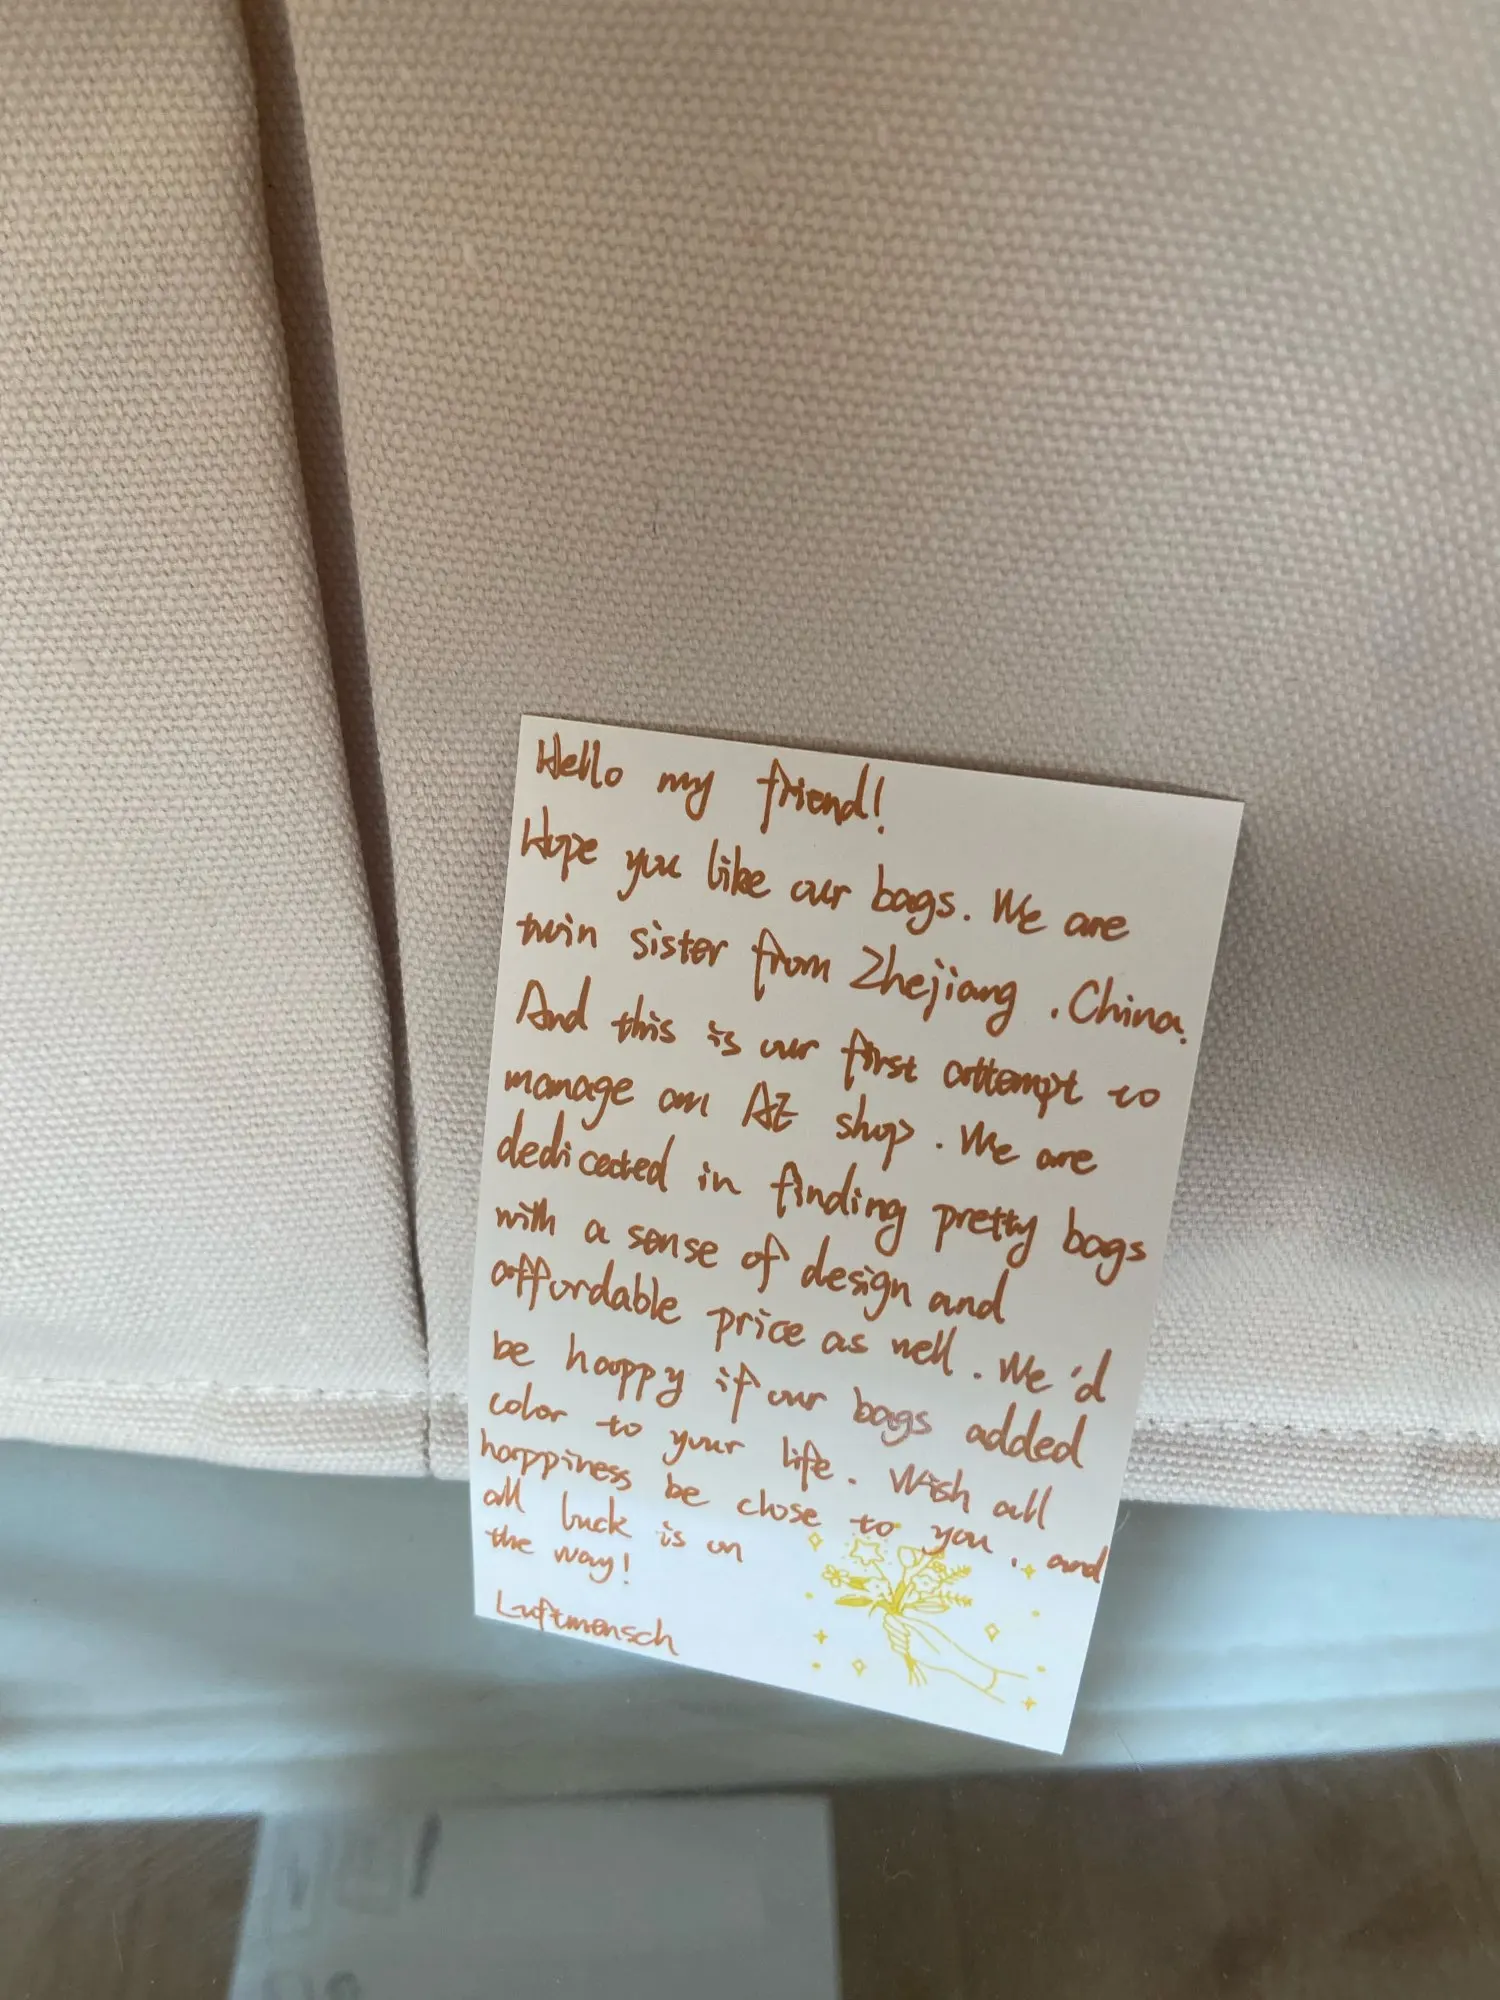 Hello my friend!
Hope you like our bags. We are
twin sister from Zhejiang . China.
And this is our first attempt to
manage an AE shop . We are
dedicated in finding pretty bags
with a sense of design and
affordable price as well . We'd
be happy if our bags added
color to your life . Wish all
happiness be close to you . and
all luck is on
the way!
Luftmensch